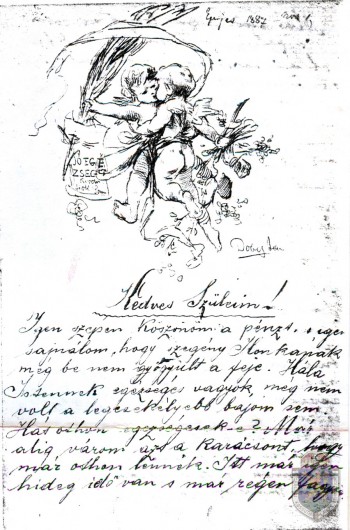 Eperjes 1887 nov 1
JÓ EGÉ
ZSÉGE
Dobos Jenő
Kedves Szüleim!
Igen szépen köszönöm a pénzt, s igen
sajnálom, hogy szegény
még be nem gyógyult a feje. Hála
Istennek egészséges vagyok, még nem
volt a legcsekélyebb bajom sem
Hát othon egészségesek-e? Már
alig várom azt a karácsont, hogy
már othon lennék. Itt már igen
hideg idő van s már régen